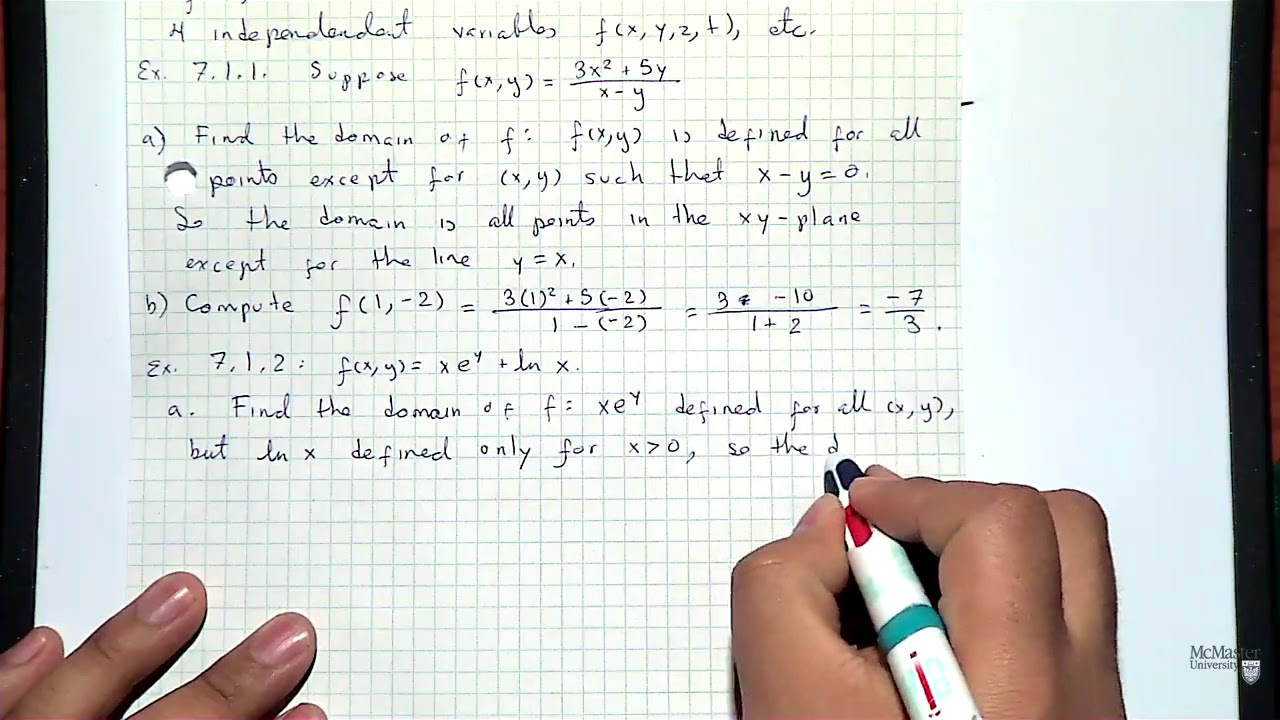 4 independendent variables f(x, y, z, t), etc.
Ex. 7.1.1. Suppose f(x,y) = (3x² + 5y)/(x - y)
a) Find the domain of f: f(x,y) is defined for all
points except for (x,y) such that x - y = 0.
So the domain is all points in the xy-plane
except for the line y = x.
b) Compute f(1, -2) = (3(1)² + 5(-2))/(1 - (-2)) = (3 - 10)/(1 + 2) = -7/3.
Ex. 7.1.2: f(x,y) = x e^y + ln x.
a. Find the domain of f: xe^y defined for all (x, y),
but ln x defined only for x > 0, so the d
McMaster
University